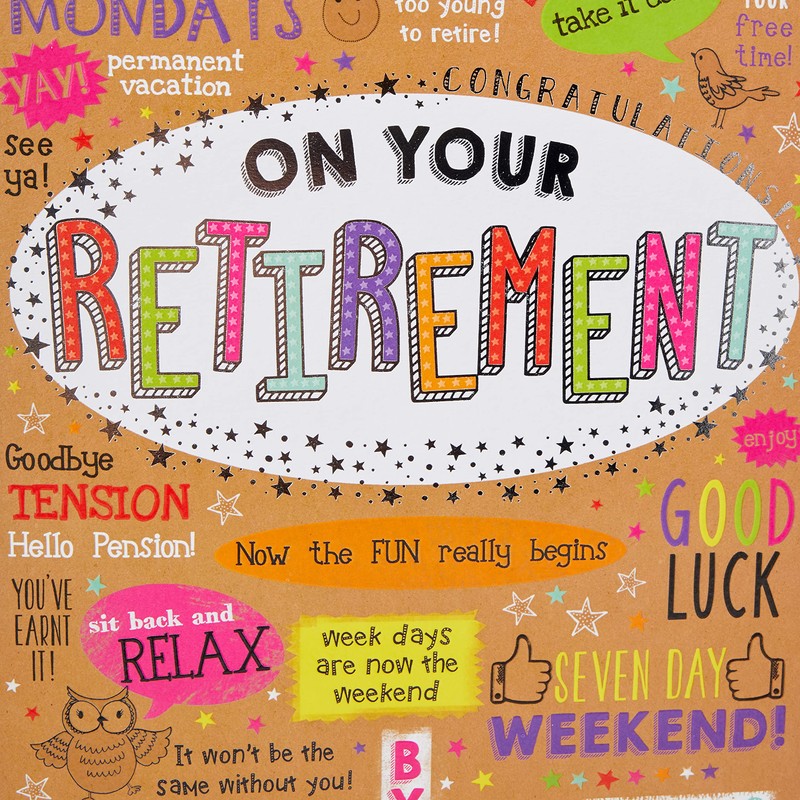 MONDAYS
too young
to retire!
take it
YOUR
free
time!
YAY!
permanent
vacation
see
ya!
CONGRATULATIONS
ON YOUR
RETIREMENT
Goodbye
TENSION
Hello Pension!
enjoy
GOOD
LUCK
Now the FUN really begins
YOU'VE
EARNT
IT!
sit back and
RELAX
week days
are now the
weekend
SEVEN DAY
WEEKEND!
It won't be the
same without you!
BY